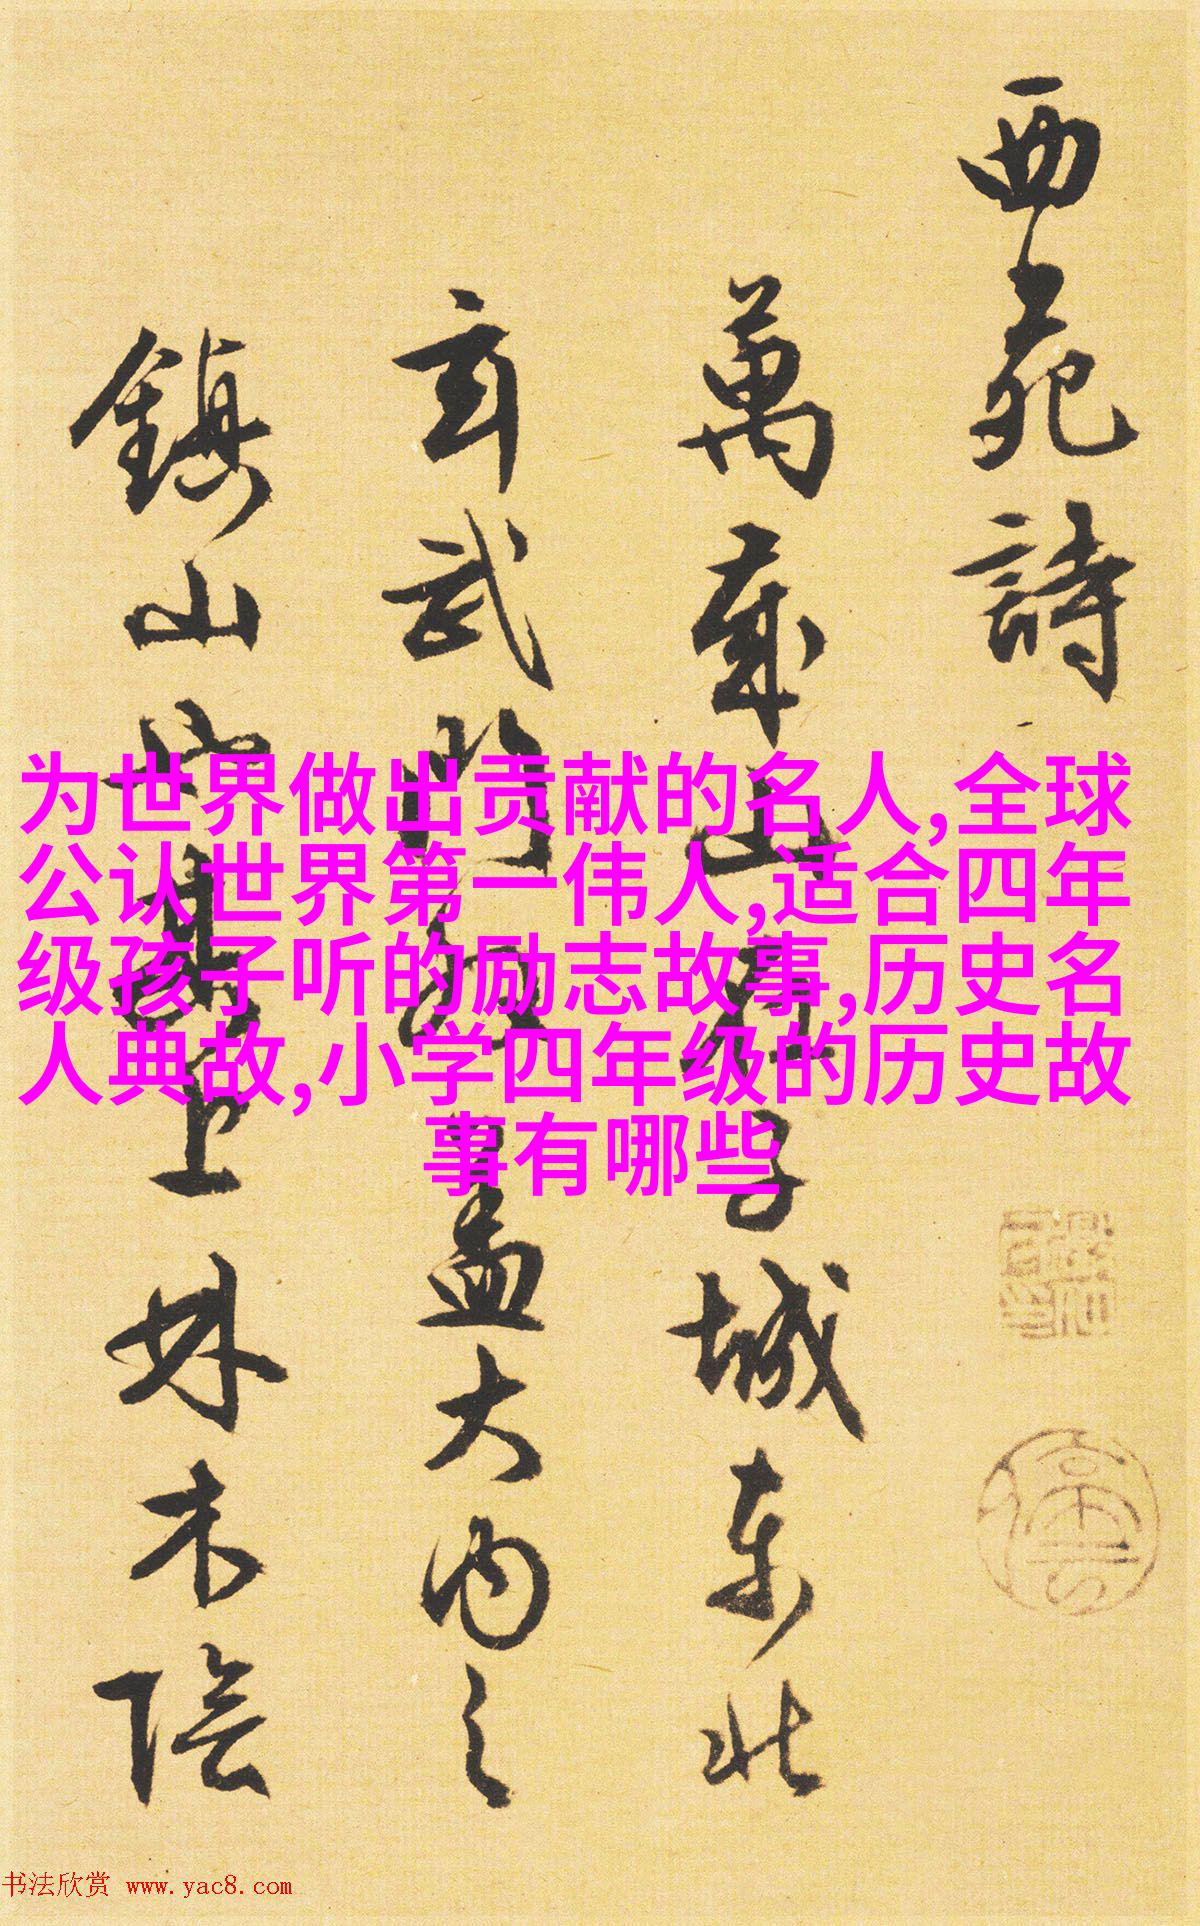 西苑詩
萬歲山在子城東北
玄武門外蓋大内之
鎮山也其上林木陰
为世界做出贡献的名人,全球
公认世界第一伟人,适合四年
级孩子听的励志故事,历史名
人典故,小学四年级的历史故
事有哪些
书法欣赏 www.yac8.com